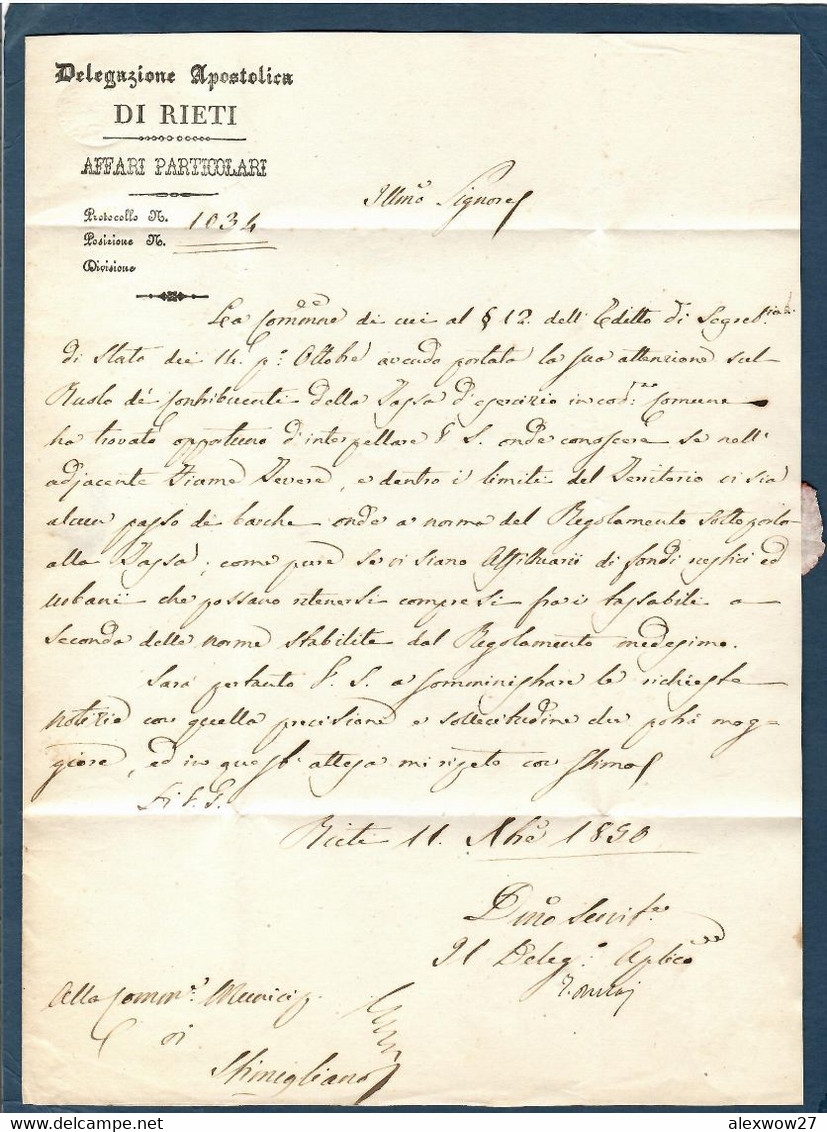 Delegazione Apostolica
DI RIETI
AFFARI PARTICOLARI
Protocollo N. 1034
Posizione N.
Divisione
Illmo Signore
La Commne di cui al § 12. dell'Editto di Segret.ria
di Stato dei 14. p.º Ottobe avendo portata la sua attenzione sul
Ruolo dé Contribuenti della Tassa d'esercizio in cod.ta Comune
ha trovato opportuno d'interpellare V. S. onde conoscere se nell'
adjacente Fiume Tevere, e dentro i limiti del Territorio vi sia
alcun passo di barche onde a norma del Regolamento sottoporlo
alla Tassa; come pure se vi siano Affittuarii di fondi rustici ed
urbani che possano ritenersi compresi fra i tassabili a
seconda delle norme stabilite dal Regolamento medesimo.
Sarà pertanto V. S. a somministrare le richieste
notizie con quella precisione e sollecitudine che potrà mag-
giore, ed in quest' attesa mi ripeto con stima
Di V. S.
Rieti 11. Nbe 1850
Dmo Servit.re
Il Deleg.º Aplico
Alla Comm.e Municip.
di
Stimigliano
alexwow27